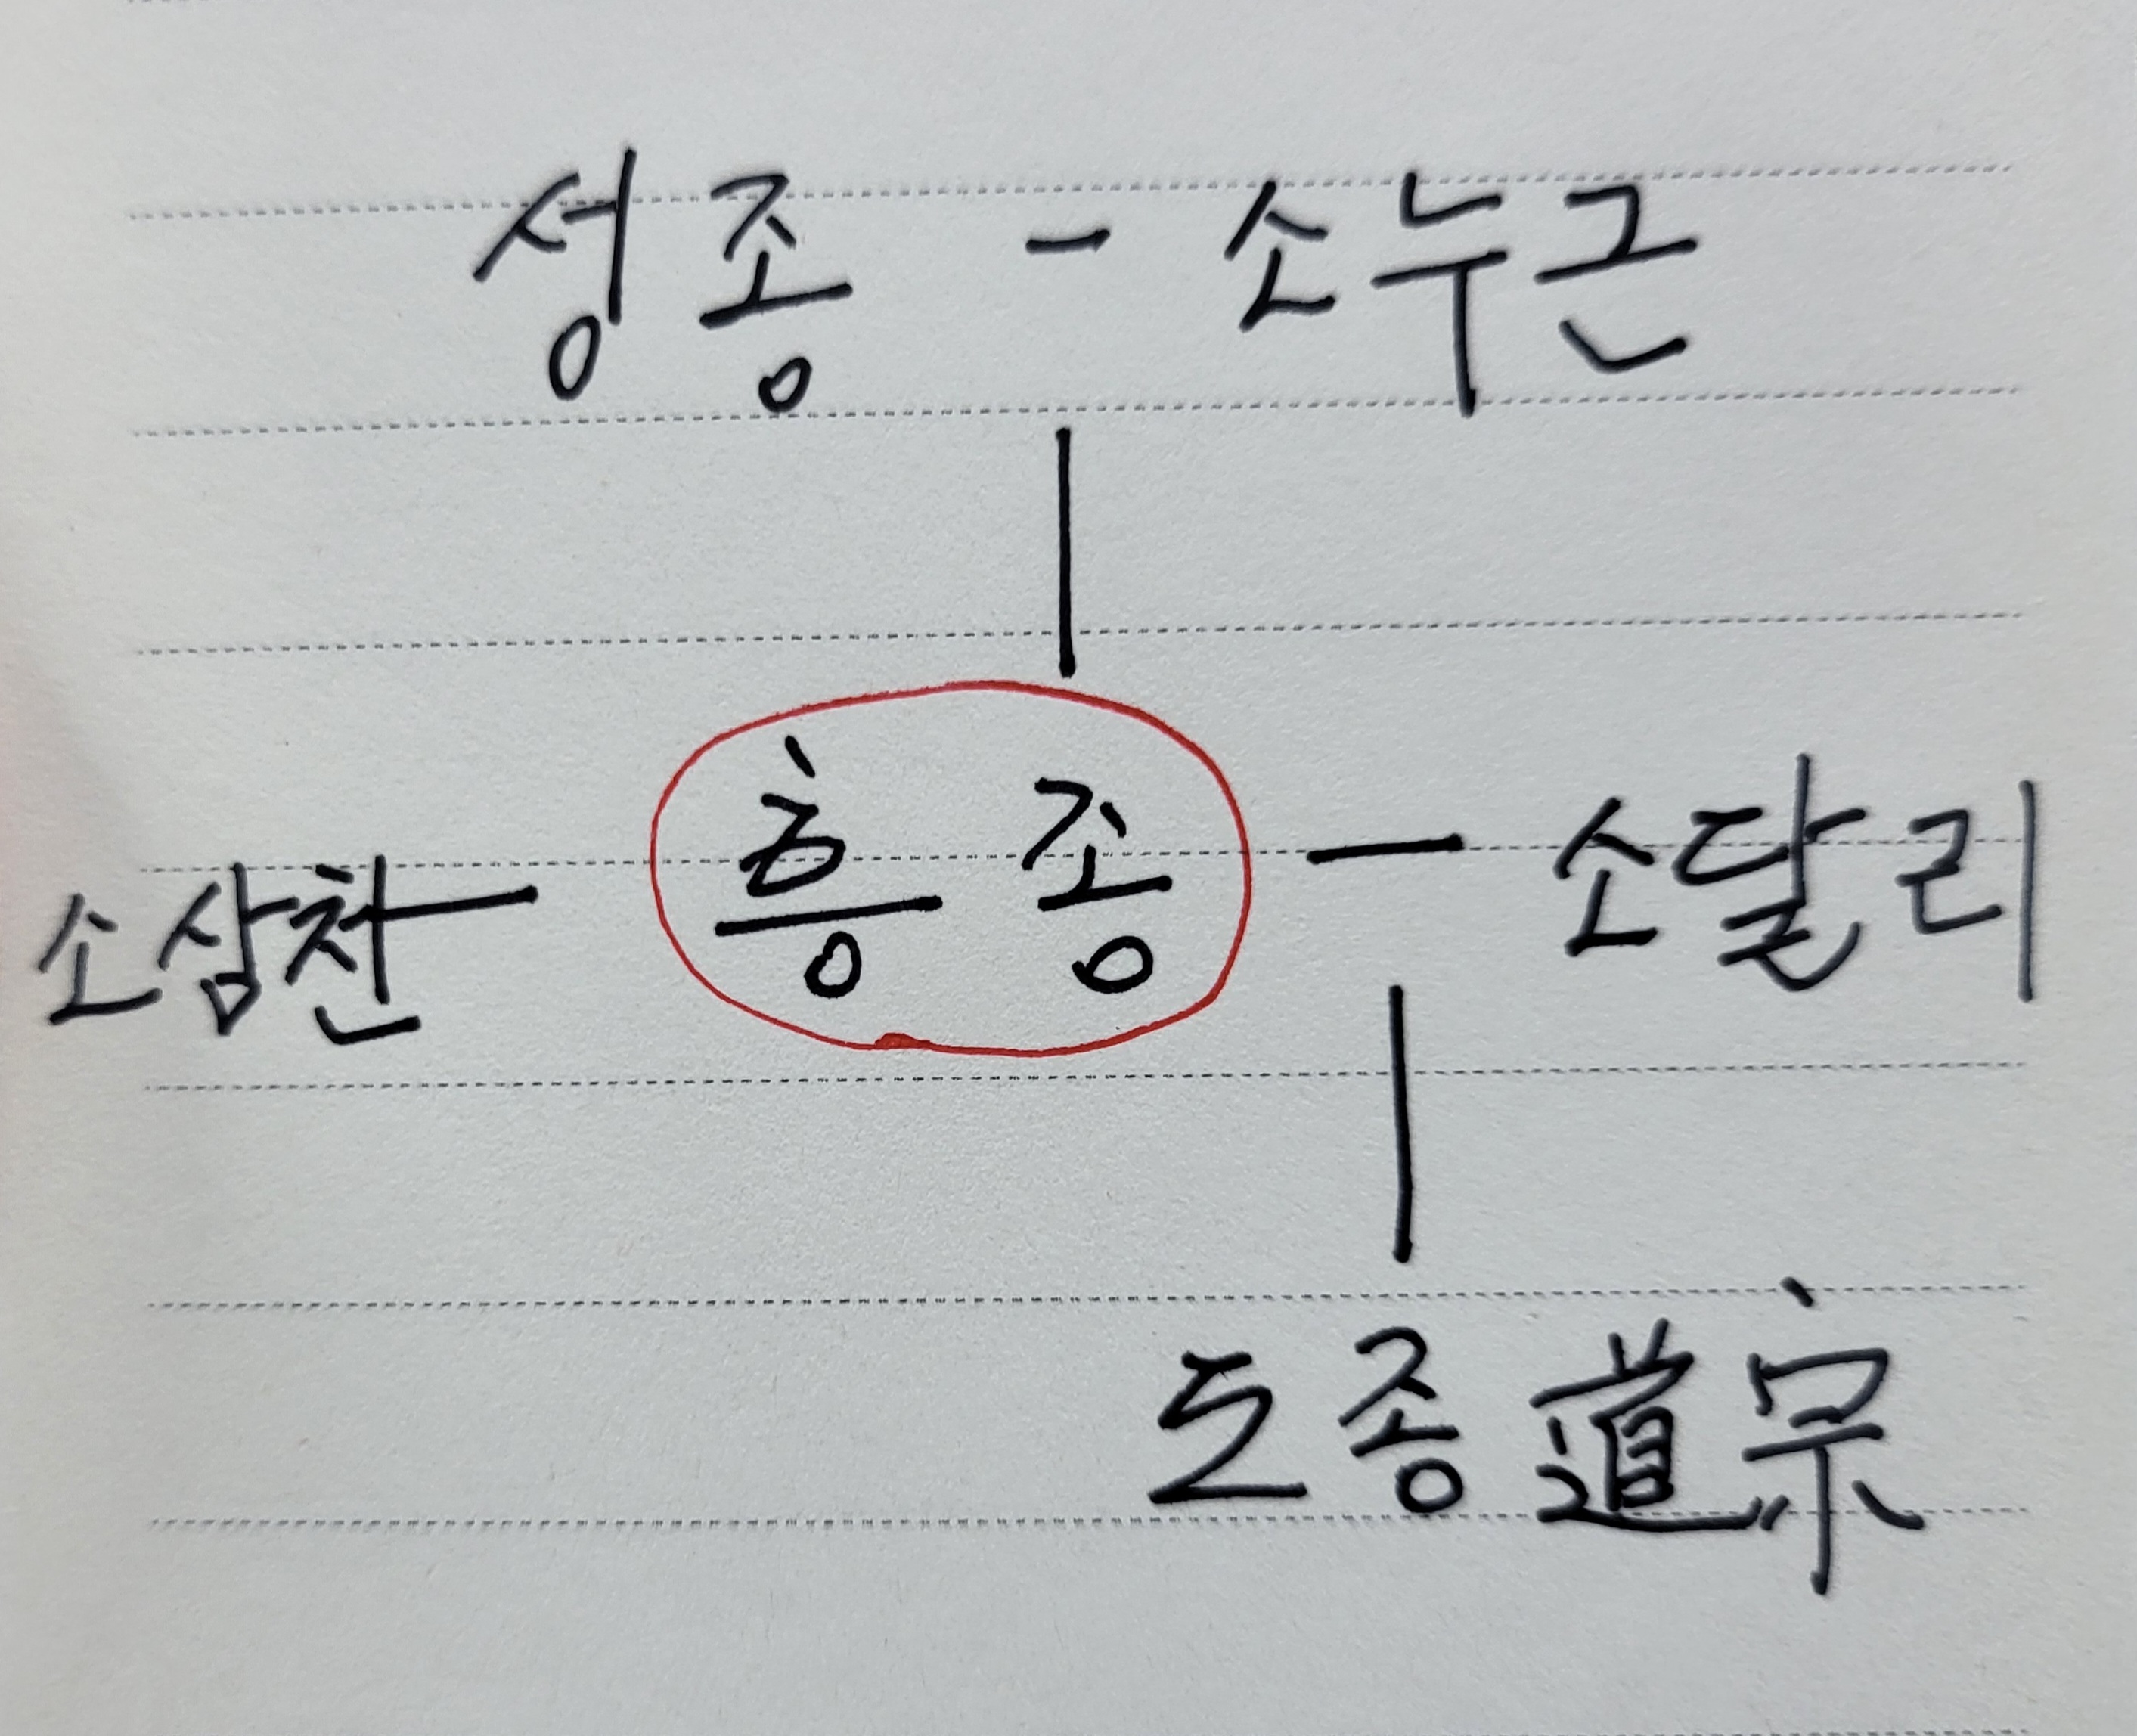 성종 - 소누근
소삼찬 - 흥종 - 소달리
도종 道宗